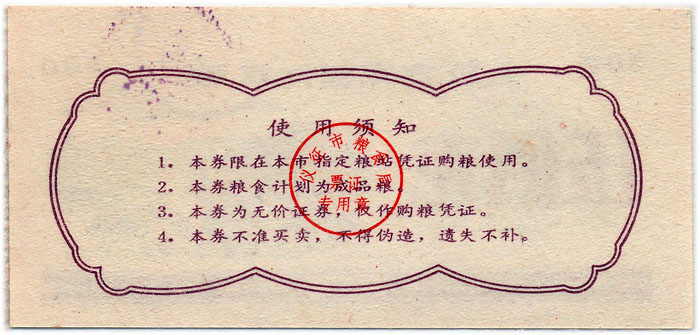 使用须知
1。本券限在本市指定粮站凭证购粮使用。
2。本券粮食计划为成品粮。
3。本券为无价证券，仅作购粮凭证。
4。本券不准买卖，不得伪造，遗失不补。
仪征市粮食局
票证
专用章